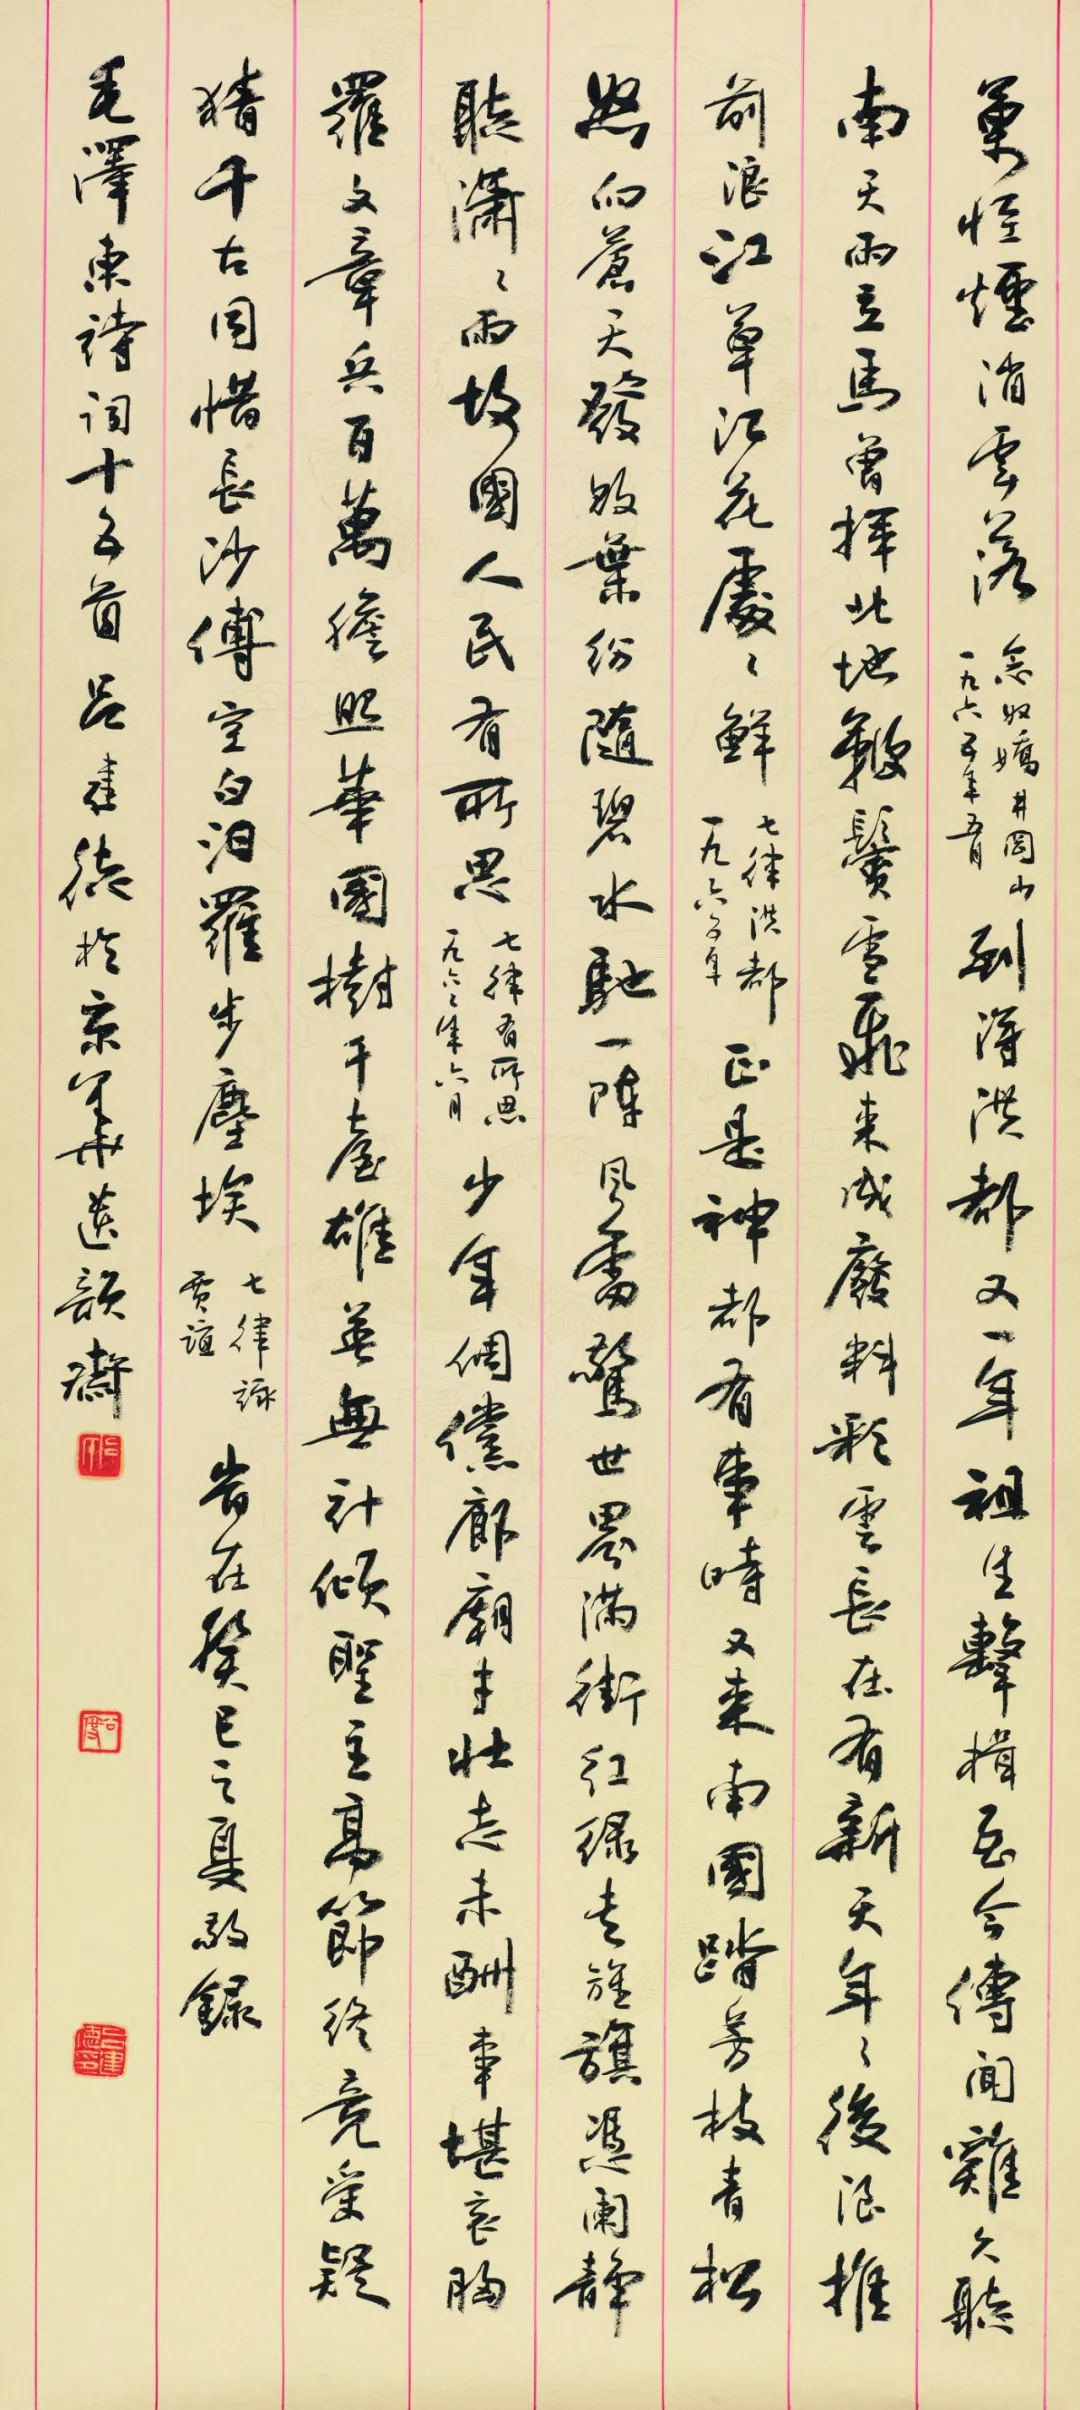 萬怪煙消雲落
念奴嬌井岡山
一九六五年五月
到得洪都又一年祖生擊楫至今傳聞雞久聽
南天雨立馬曾揮北地鞭鬢雪飛來成廢料彩雲長在有新天年〻後浪推
前浪江草江花處〻鮮
七律洪都
一九六五年
正是神都有事時又來南國踏芳枝青松
怒向蒼天發敗葉紛隨碧水馳一陣風雷驚世界滿街紅綠走旌旗憑闌靜
聽瀟〻雨故國人民有所思
七律有所思
一九六六年六月
少年倜儻廊廟才壯志未酬事堪哀胸
羅文章兵百萬膽照華國樹千臺雄英無計傾聖主高節終竟受疑
猜千古同惜長沙傅空白汨羅步塵埃
七律詠
賈誼
歲在癸巳之夏敬錄
毛澤東詩詞十五首呂建德於京華遠韻齋